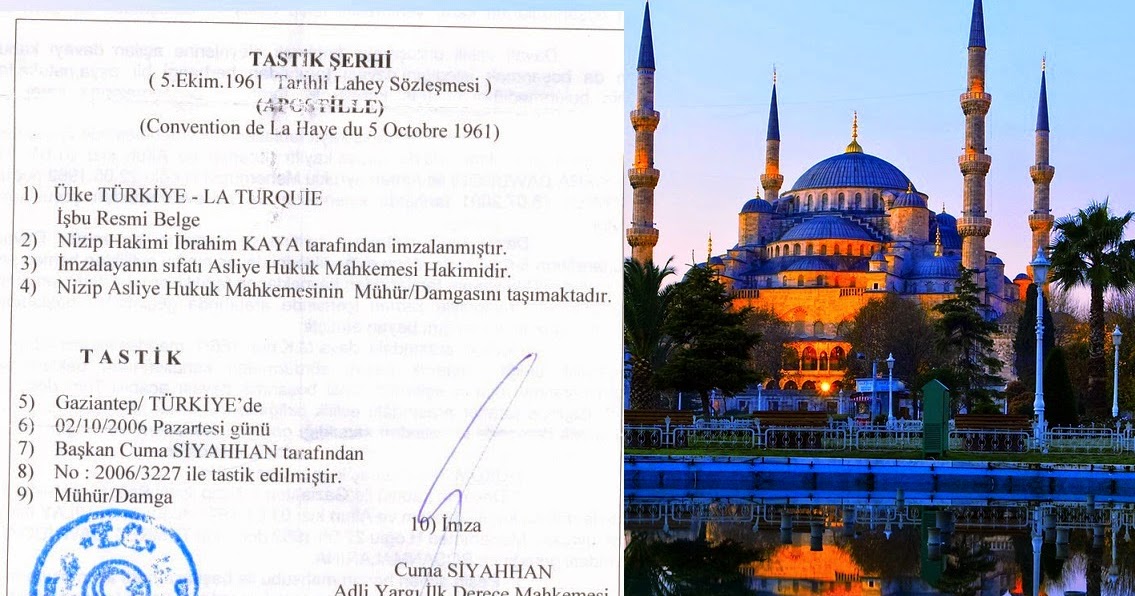 TASTİK ŞERHİ
( 5.Ekim.1961 Tarihli Lahey Sözleşmesi )
(APOSTİLLE)
(Convention de La Haye du 5 Octobre 1961)
1) Ülke TÜRKİYE - LA TURQUİE
İşbu Resmi Belge
2) Nizip Hakimi İbrahim KAYA tarafından imzalanmıştır.
3) İmzalayanın sıfatı Asliye Hukuk Mahkemesi Hakimidir.
4) Nizip Asliye Hukuk Mahkemesinin Mühür/Damgasını taşımaktadır.
T A S T İ K
5) Gaziantep/ TÜRKİYE'de
6) 02/10/2006 Pazartesi günü
7) Başkan Cuma SİYAHHAN tarafından
8) No : 2006/3227 ile tastik edilmiştir.
9) Mühür/Damga
10) İmza
T.C.
Cuma SİYAHHAN
Adli Yargı İlk Derece Mahkemesi